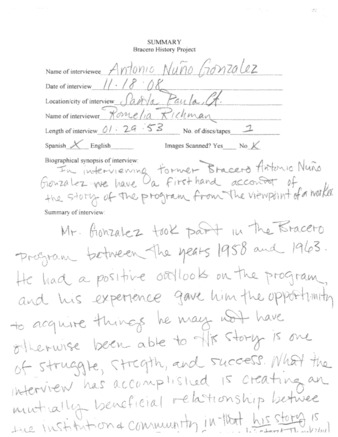 SUMMARY
Bracero History Project
Name of interviewee Antonio Nuño Gonzalez
Date of interview 11-18-08
Location/city of interview Santa Paula, CA.
Name of interviewer Romelia Richman
Length of interview 01:29:53 No. of discs/tapes 1
Spanish X English Images Scanned? Yes No X
Biographical synopsis of interview:
In interviewing former Bracero Antonio Nuño
Gonzalez we have a firsthand account of
the story of the program from the viewpoint of a worker
Summary of interview:
Mr. Gonzalez took part in the Bracero
Program between the years 1958 and 1963.
He had a positive outlook on the program,
and his experience gave him the opportunity
to acquire things he may not have
otherwise been able to His story is one
of struggle, strength, and success. What the
interview has accomplished is creating an
mutually beneficial relationship between
the institution & community in that his story is